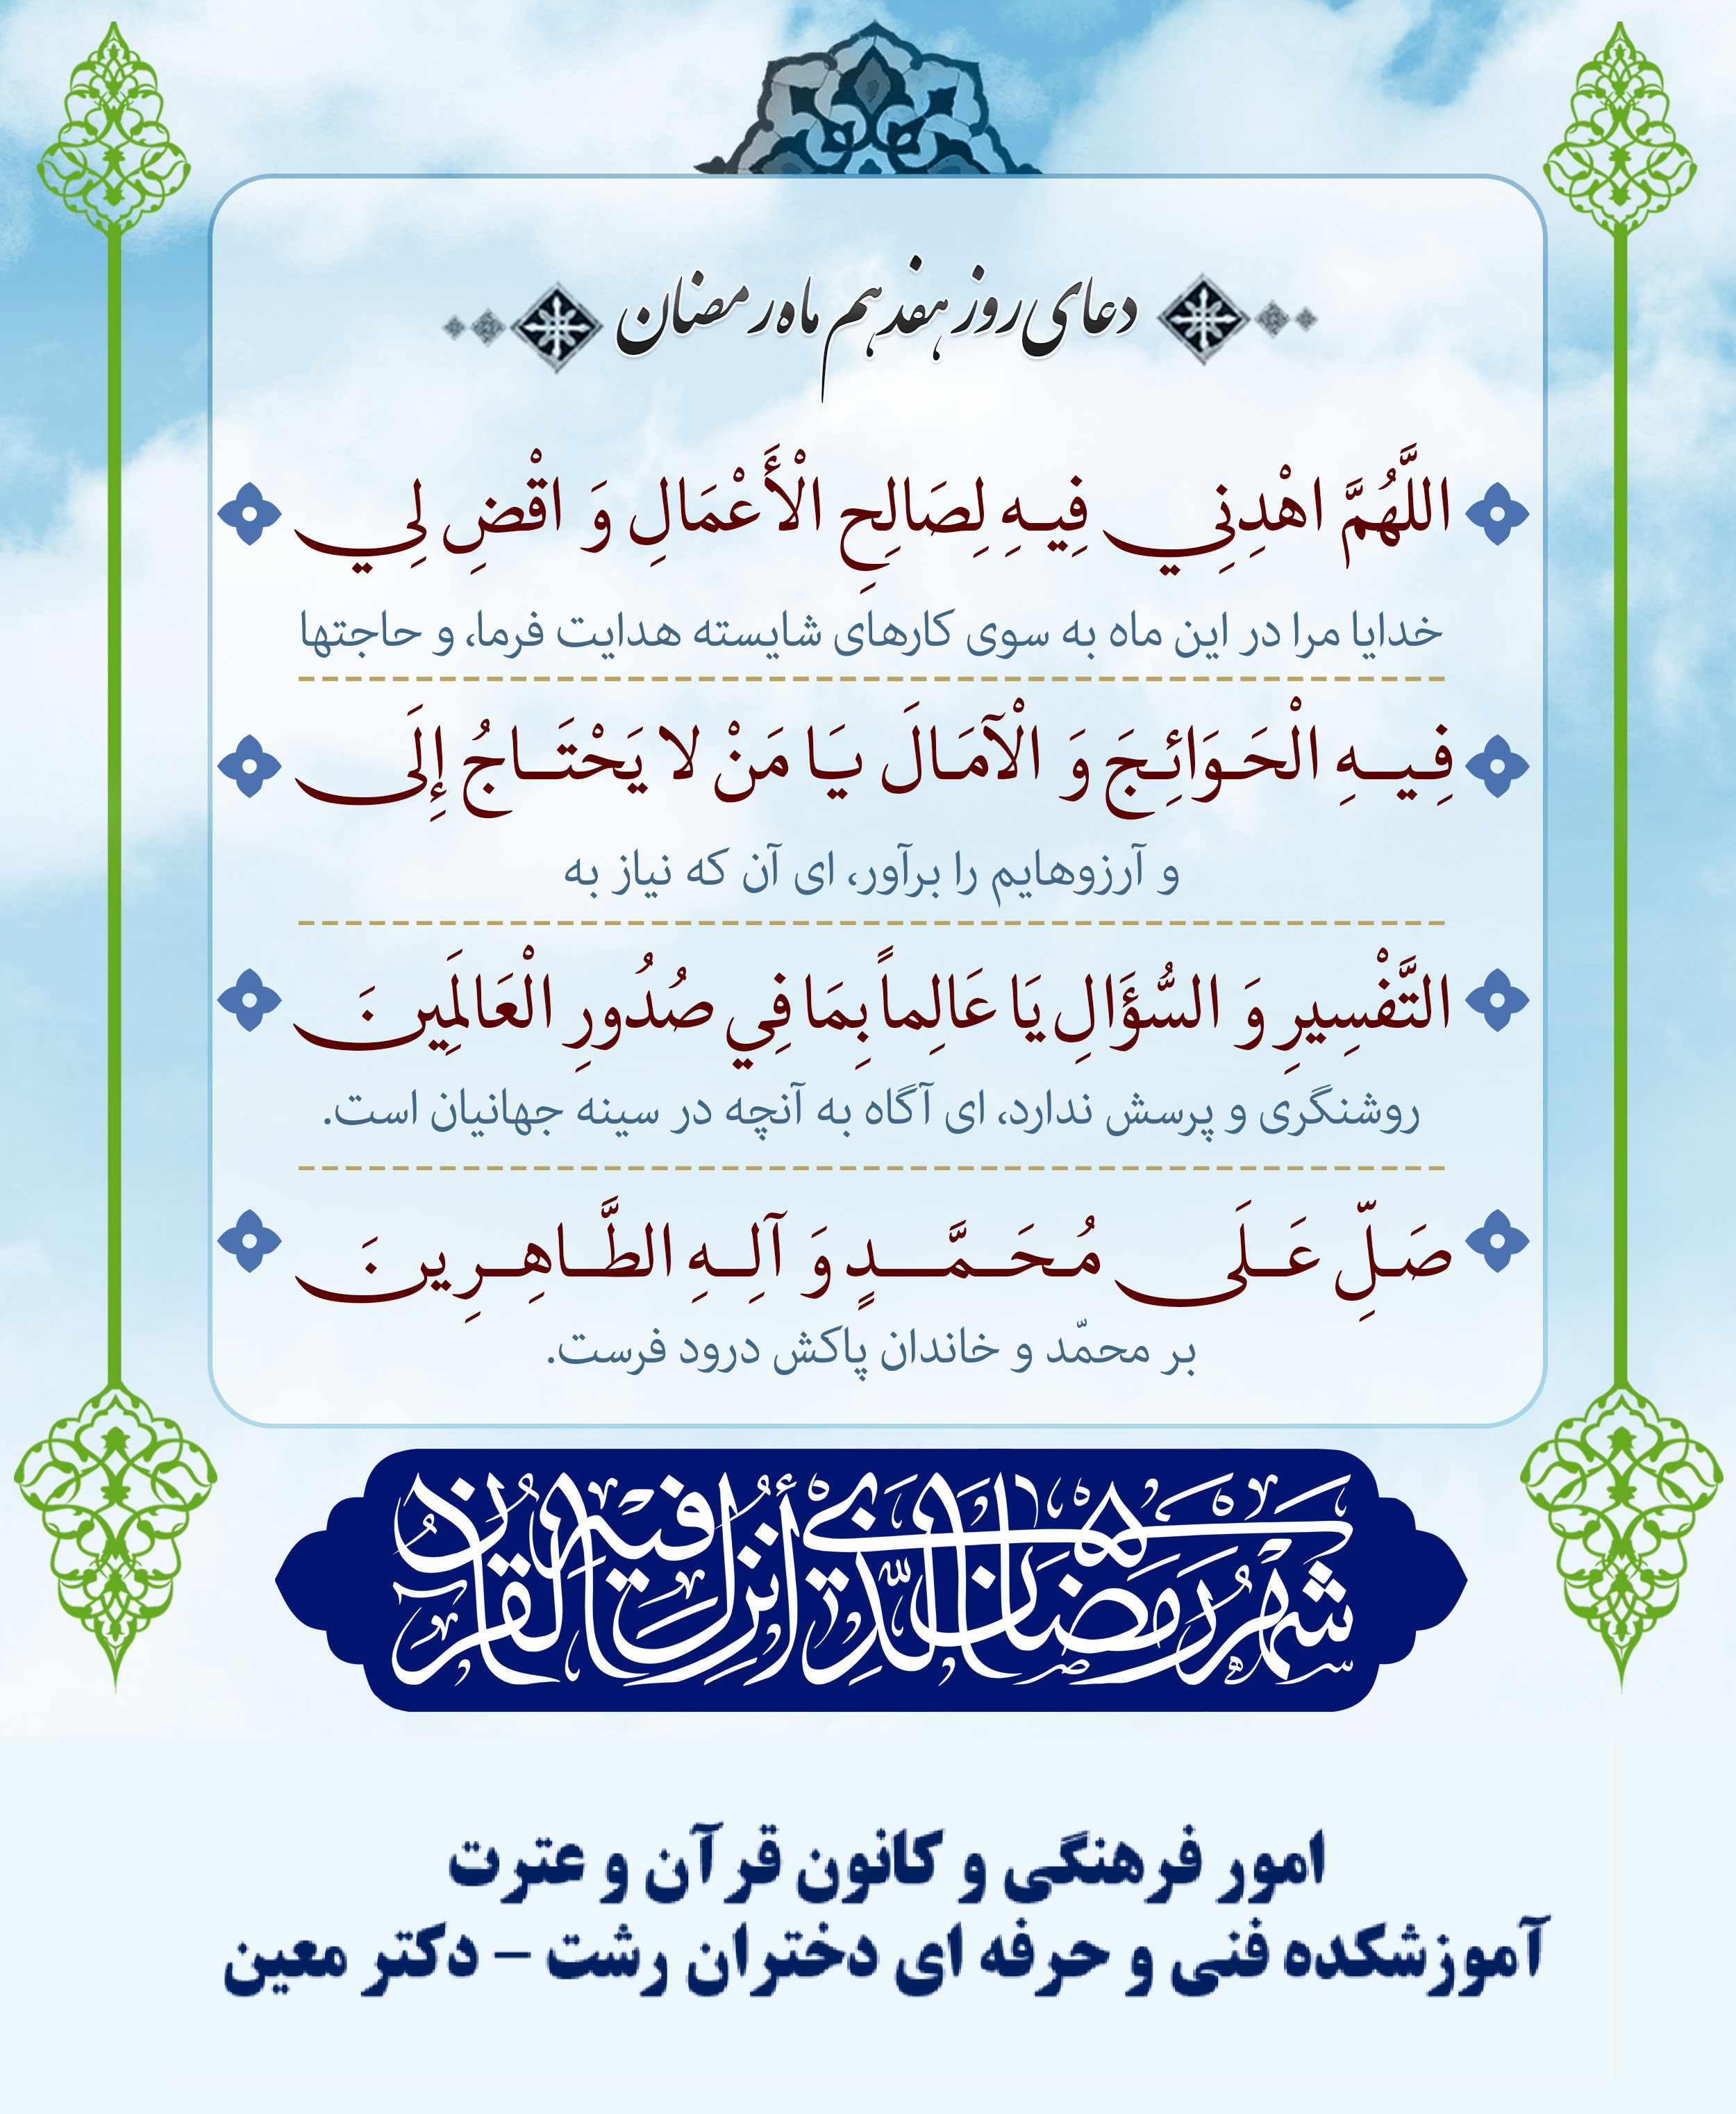 دعای روز هفدهم ماه رمضان
اللَّهُمَّ اهْدِنِي فِيهِ لِصَالِحِ الْأَعْمَالِ وَ اقْضِ لِي
خدایا مرا در این ماه به سوی کارهای شایسته هدایت فرما، و حاجتها
فِيهِ الْحَوَائِجَ وَ الْآمَالَ يَا مَنْ لا يَحْتَاجُ إِلَى
و آرزوهایم را برآور، ای آن که نیاز به
التَّفْسِيرِ وَ السُّؤَالِ يَا عَالِماً بِمَا فِي صُدُورِ الْعَالَمِينَ
روشنگری و پرسش ندارد، ای آگاه به آنچه در سینه جهانیان است.
صَلِّ عَلَى مُحَمَّدٍ وَ آلِهِ الطَّاهِرِينَ
بر محمّد و خاندان پاکش درود فرست.
شهر رمضان الّذي أنزل فيه القرآن
امور فرهنگی و کانون قرآن و عترت
آموزشکده فنی و حرفه ای دختران رشت – دکتر معین